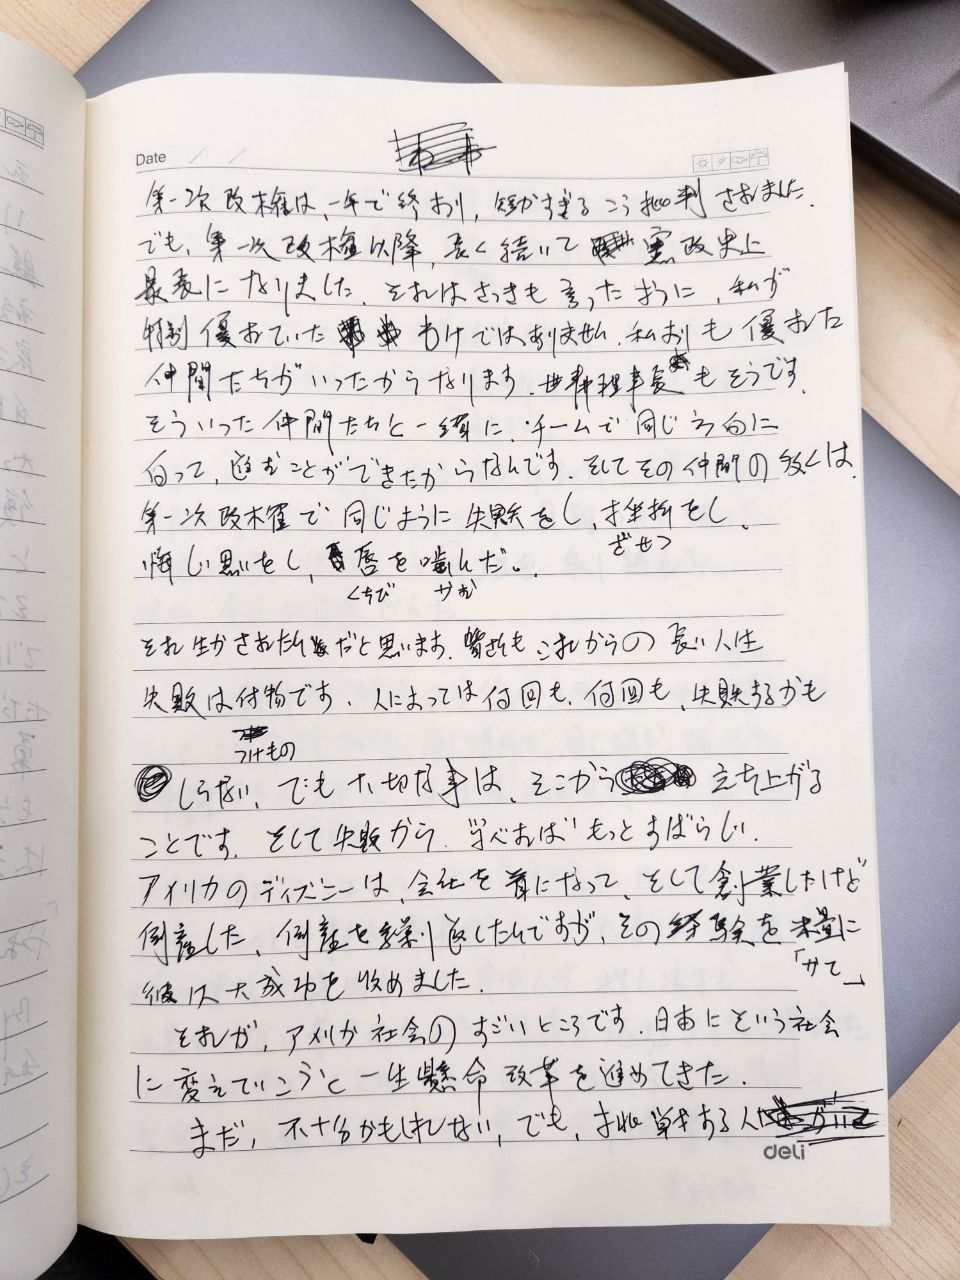 Date / /
第一次政権は、一年で終わり、短かすぎる こう批判されました.
でも、第一次政権以降、長く続いて 憲政史上
最長になりました、それはさっきも言ったように、私が
特別優れていた わけではありません、私よりも優れた
仲間たちがいったからなります. 世耕理事長もそうです.
そういった仲間たちと一緒に、チームで同じ方向に
向って、進むことができたからなんです、そしてその仲間の多くは、
第一次政権で同じように失敗をし、挫折をし、
ざせつ
悔しい思いをし、唇を噛んだ。
くちび かむ
それ生かされたんだと思います、皆さんもこれからの長い人生
失敗は付物です、人によっては何回も、何回も、失敗するかも
つけもの
しらない、でも大切な事は、そこから 立ち上がる
ことです、そして失敗から、学べればもっとすばらしい.
アメリカのディズニーは、会社を 首になって、そして創業したけど
倒産した、倒産を繰り返したんですが、その経験を 糧に
「かて」
彼は大成功を收めました.
それが、アメリカ社会のすごいところです、日本にという社会
に変えていこうと一生懸命改革を進めてきた.
まだ、不十分かもしれない、でも、
deli